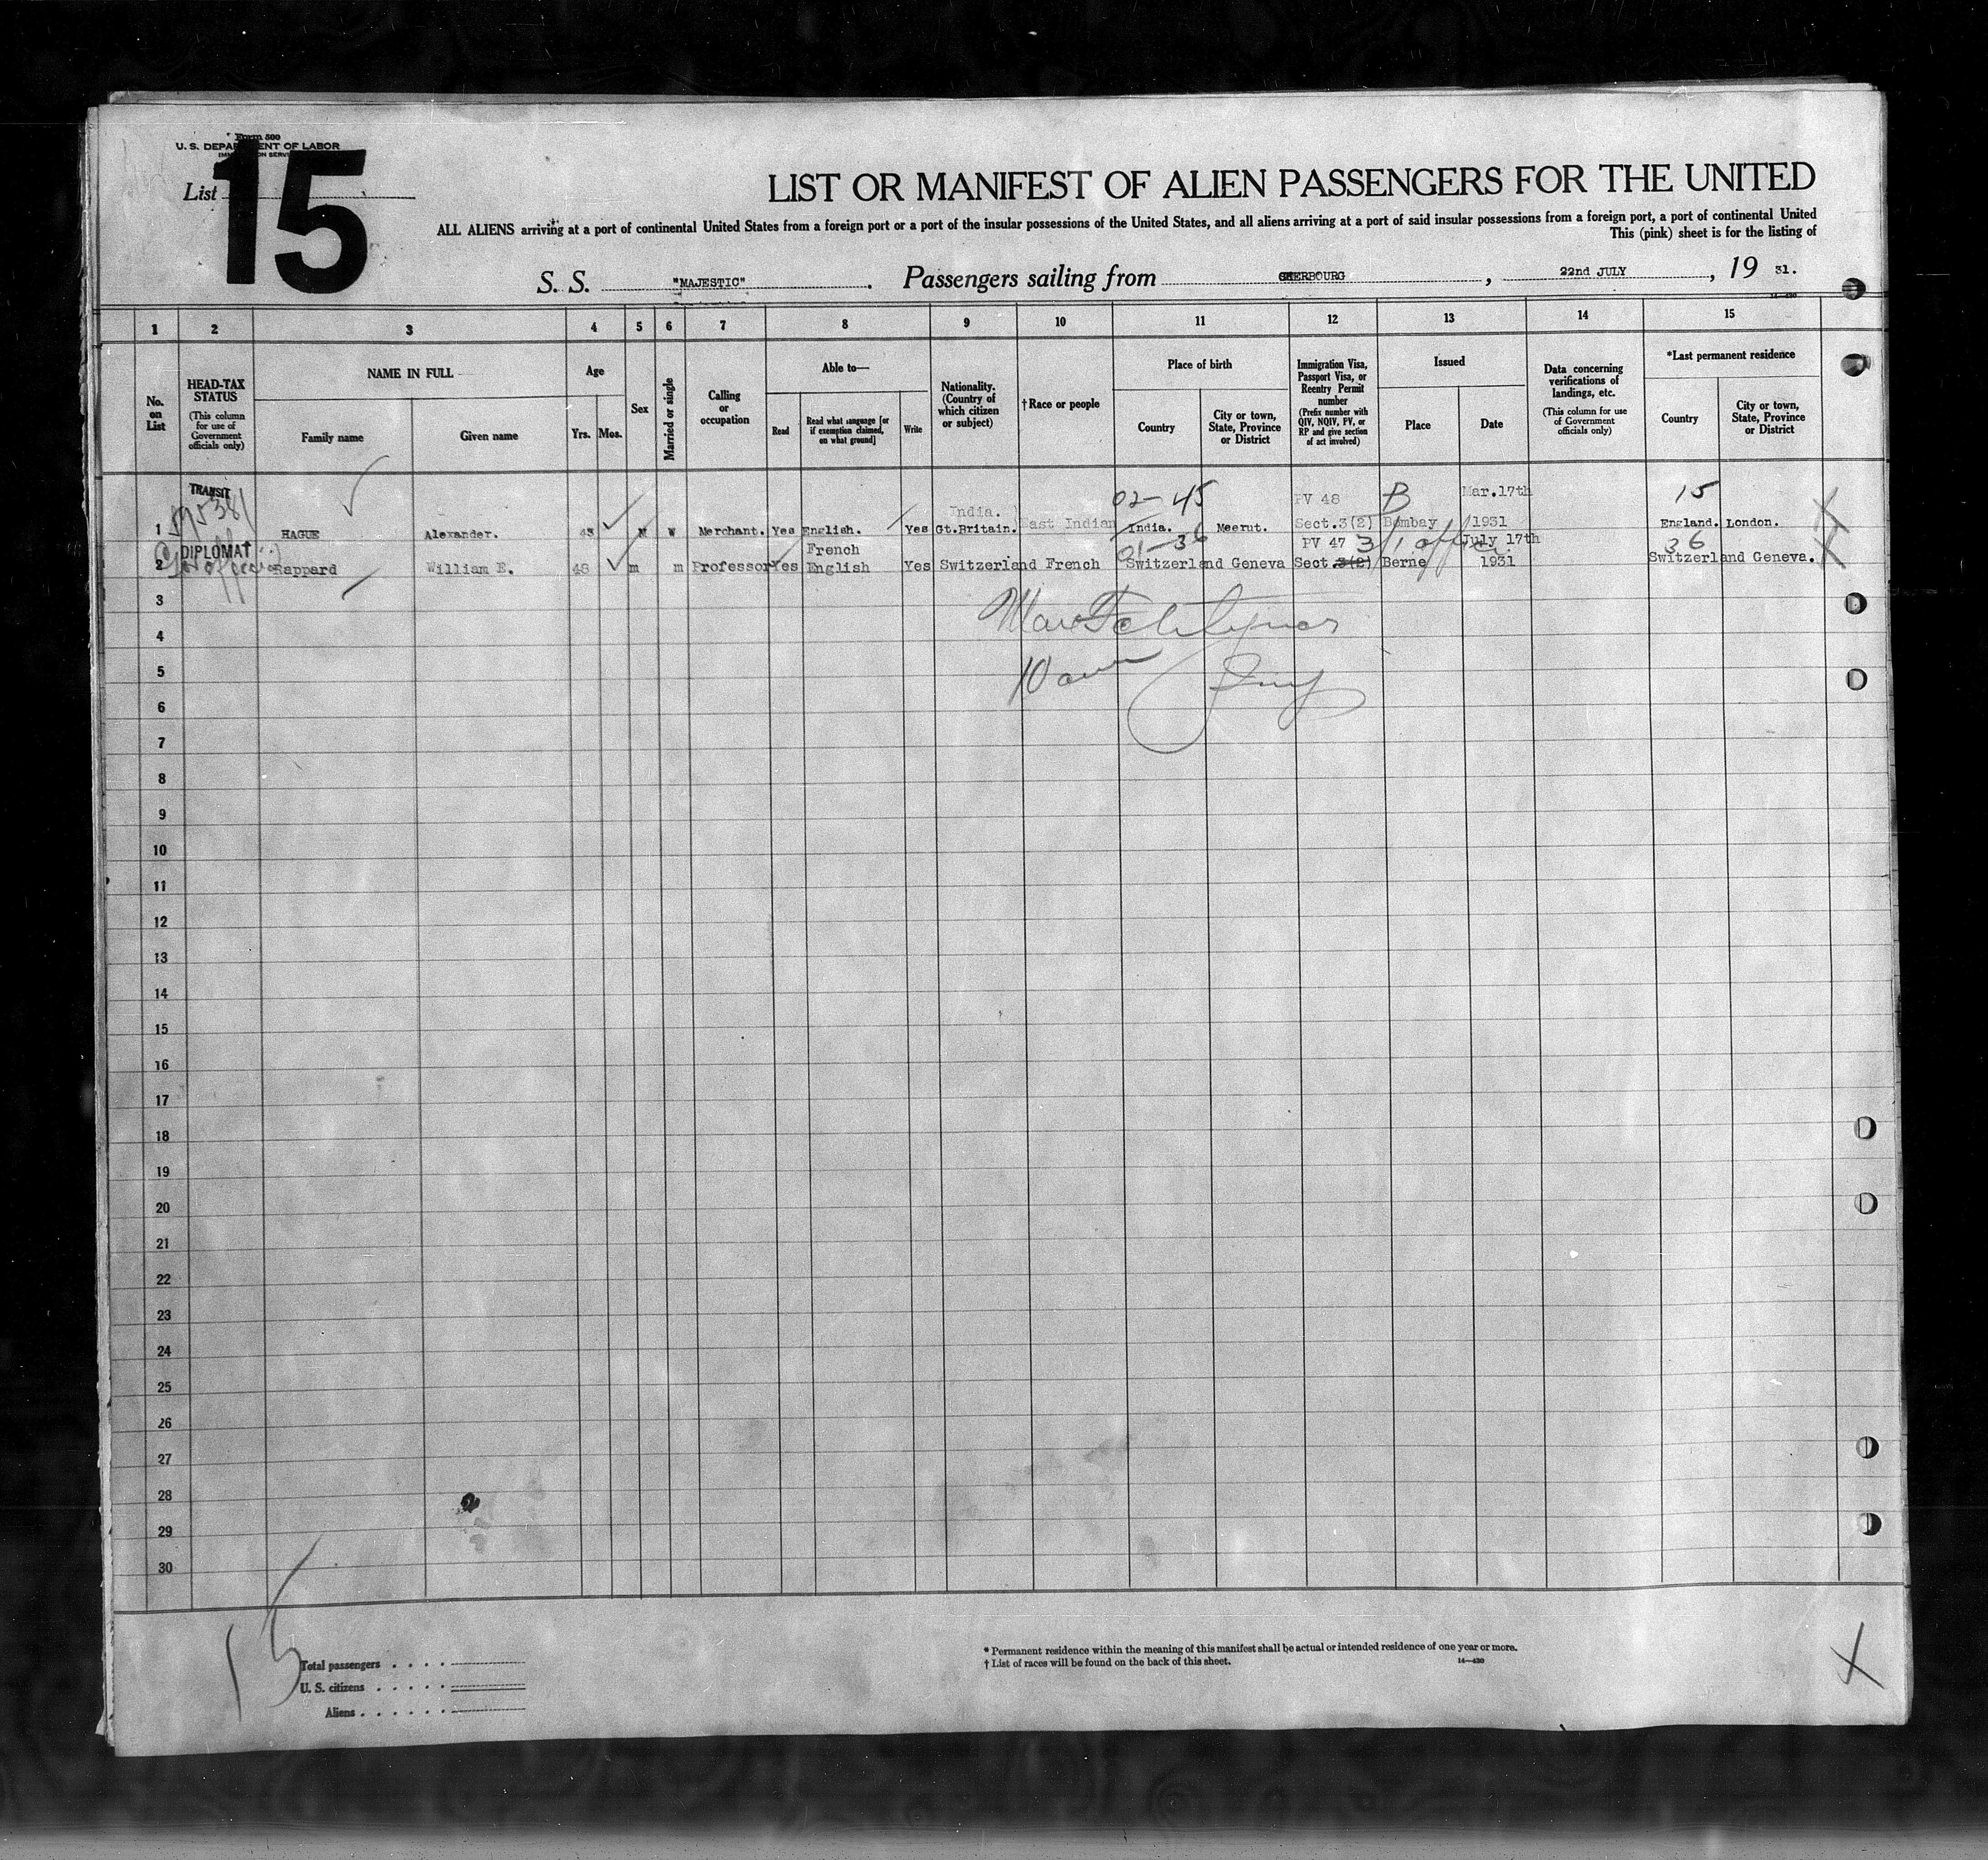 Form 500
U. S. DEPARTMENT OF LABOR
IMMIGRATION SERVICE
List 15
LIST OR MANIFEST OF ALIEN PASSENGERS FOR THE UNITED
ALL ALIENS arriving at a port of continental United States from a foreign port or a port of the insular possessions of the United States, and all aliens arriving at a port of said insular possessions from a foreign port, a port of continental United
This (pink) sheet is for the listing of
S. S. "MAJESTIC". Passengers sailing from CHERBOURG, 22nd JULY, 19 31.
14-430
1 2 3 4 5 6 7 8 9 10 11 12 13 14 15
No. on List
HEAD-TAX STATUS
(This column for use of Government officials only)
NAME IN FULL
Family name
Given name
Age
Yrs. Mos.
Sex
Married or single
Calling or occupation
Able to—
Read
Read what language [or if exemption claimed, on what ground]
Write
Nationality. (Country of which citizen or subject)
†Race or people
Place of birth
Country
City or town, State, Province or District
Immigration Visa, Passport Visa, or Reentry Permit number
(Prefix number with QIV, NQIV, PV, or RP and give section of act involved)
Issued
Place
Date
Data concerning verifications of landings, etc.
(This column for use of Government officials only)
*Last permanent residence
Country
City or town, State, Province or District
TRANSIT 02-45 PV 48 B Mar.17th 15
595381 India.
1 HAGUE Alexander. 43 M W Merchant. Yes English. Yes Gt.Britain. East Indian India. Meerut. Sect.3(2) Bombay 1931 England. London.
DIPLOMAT French 01-36 PV 47 3/1 official July 17th 36
2 Rappard William E. 48 m m Professor Yes English Yes Switzerland French Switzerland Geneva Sect.3(2) Berne 1931 Switzerland Geneva.
3
4
10 am
5
6
7
8
9
10
11
12
13
14
15
16
17
18
19
20
21
22
23
24
25
26
27
28
29
30
15
Total passengers
U. S. citizens
Aliens
* Permanent residence within the meaning of this manifest shall be actual or intended residence of one year or more.
† List of races will be found on the back of this sheet.
14—430
X